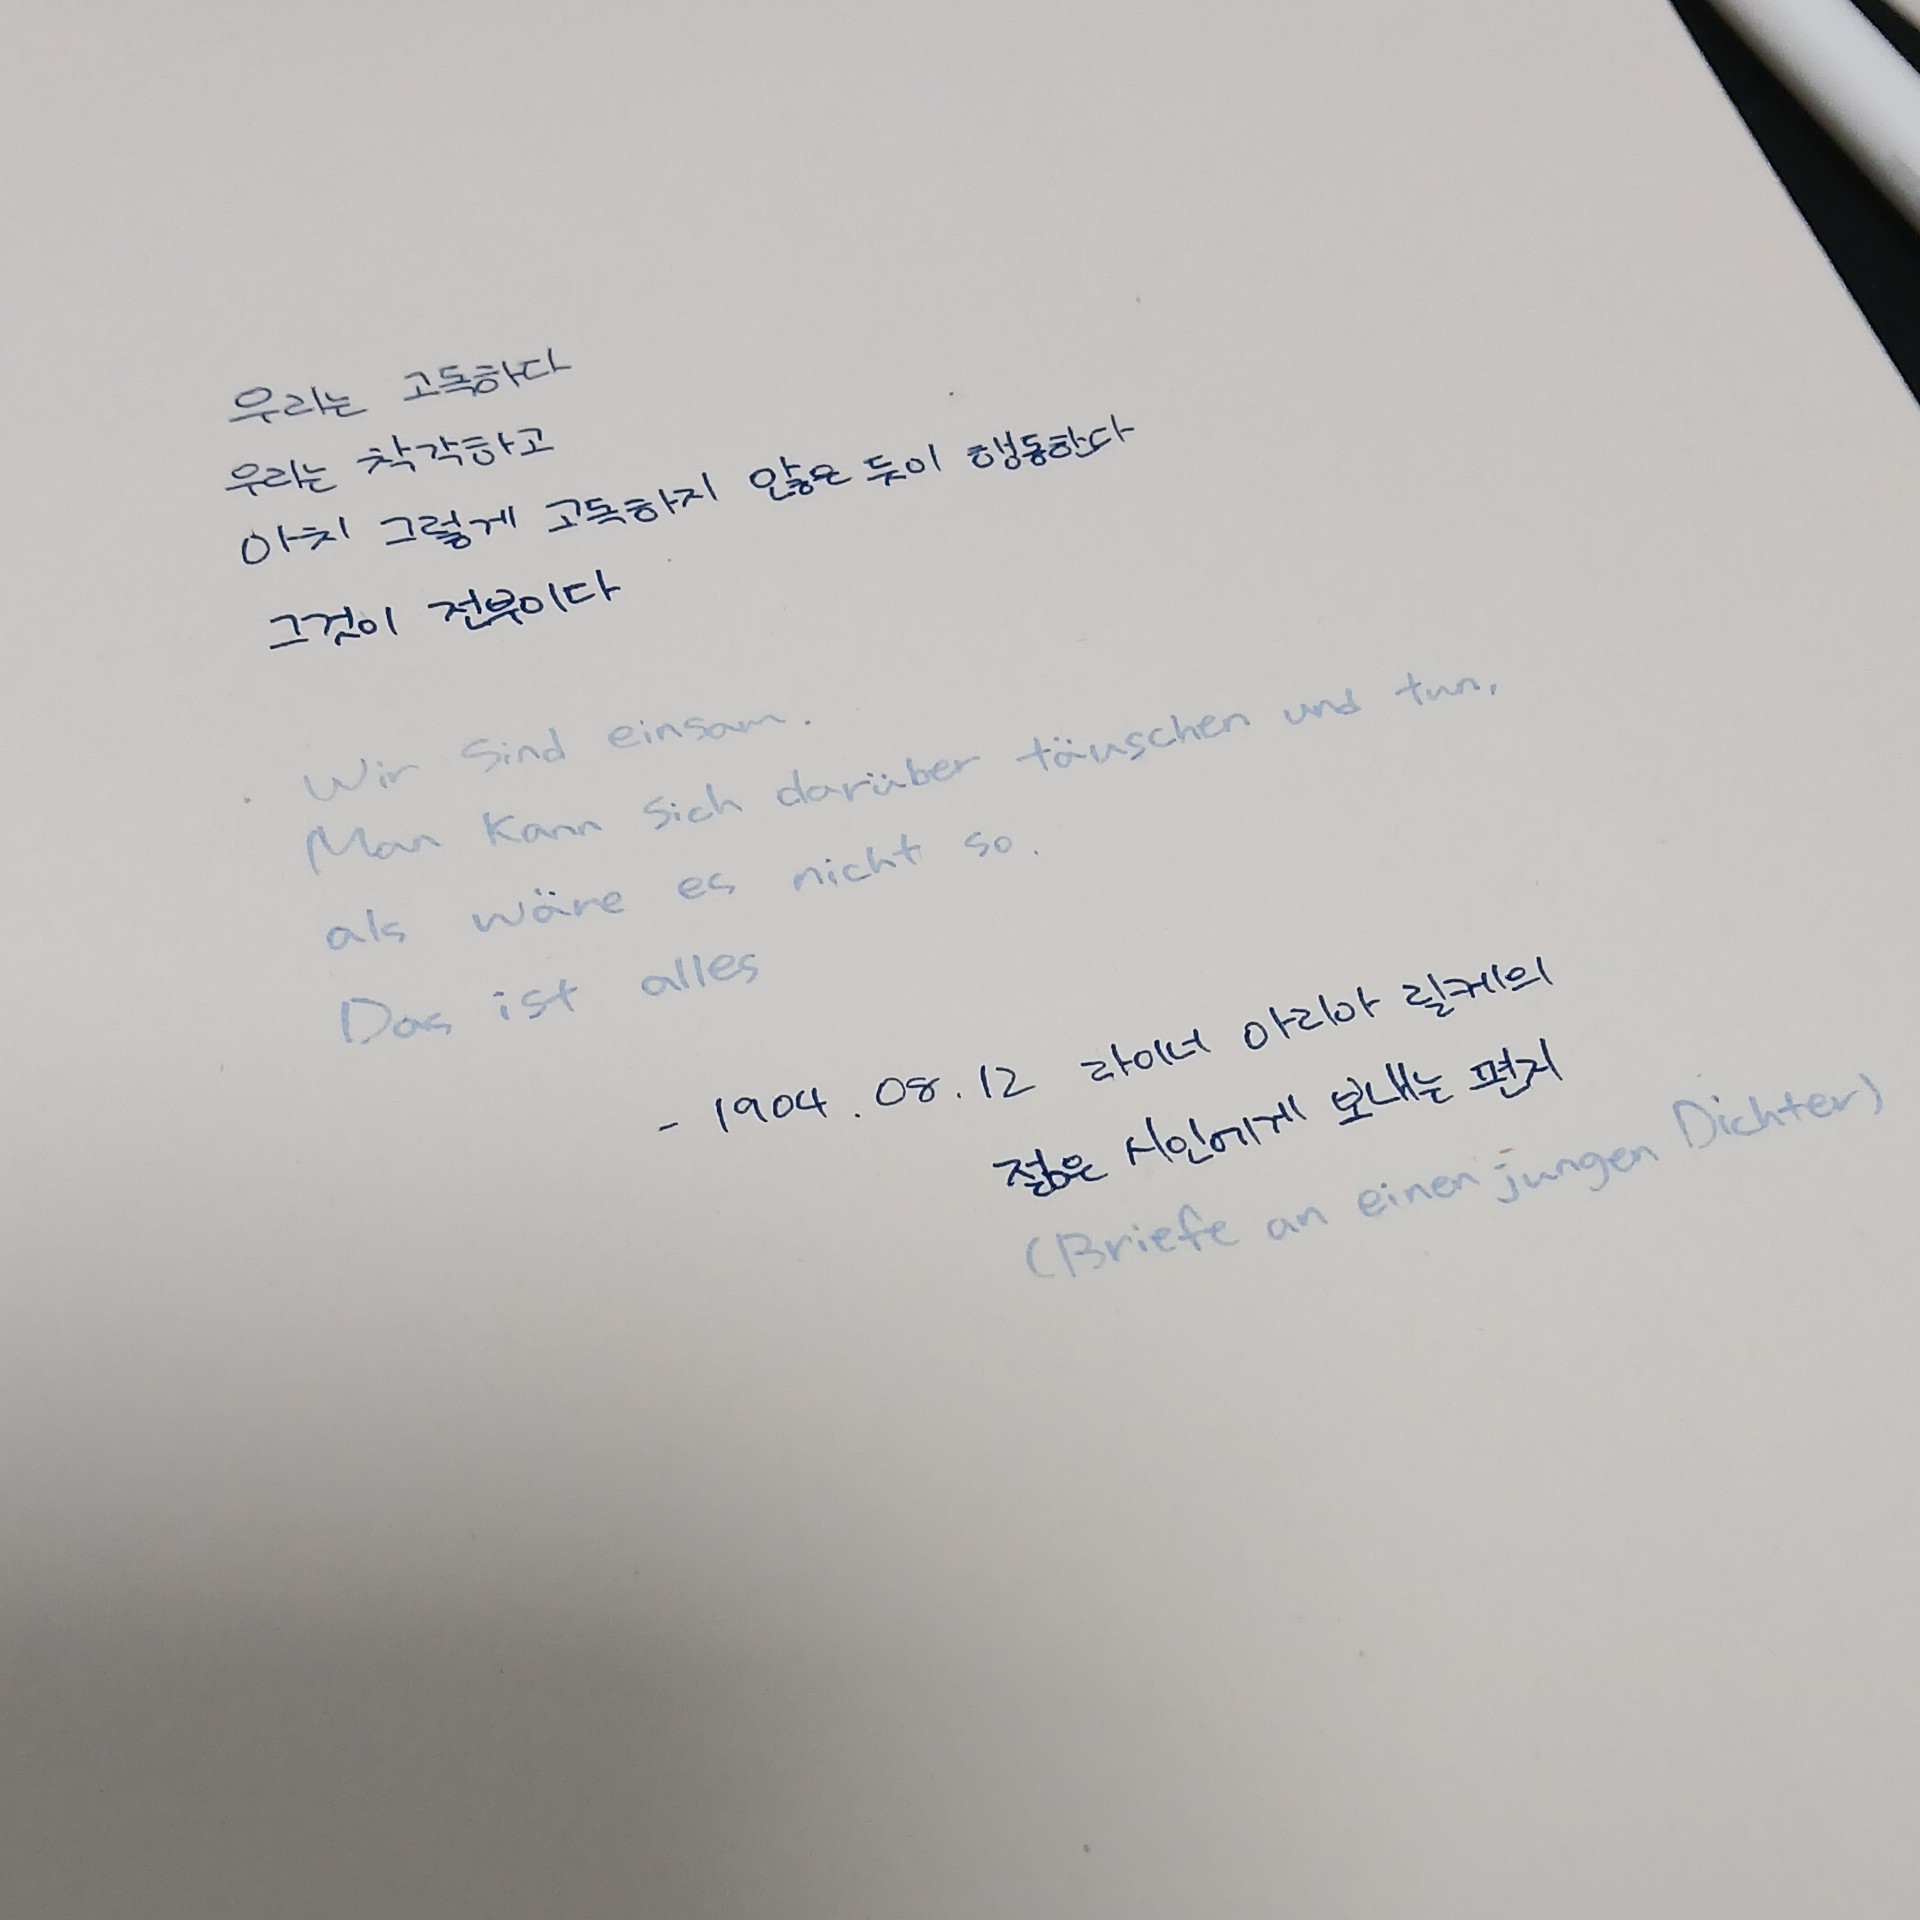 우리는 고독하다
우리는 착각하고
마치 그렇게 고독하지 않은 듯이 행동한다
그것이 전부이다
Wir sind einsam.
Man kann sich darüber täuschen und tun,
als wäre es nicht so.
Das ist alles
- 1904.08.12 라이너 마리아 릴케의
젊은 시인에게 보내는 편지
(Briefe an einen jungen Dichter)